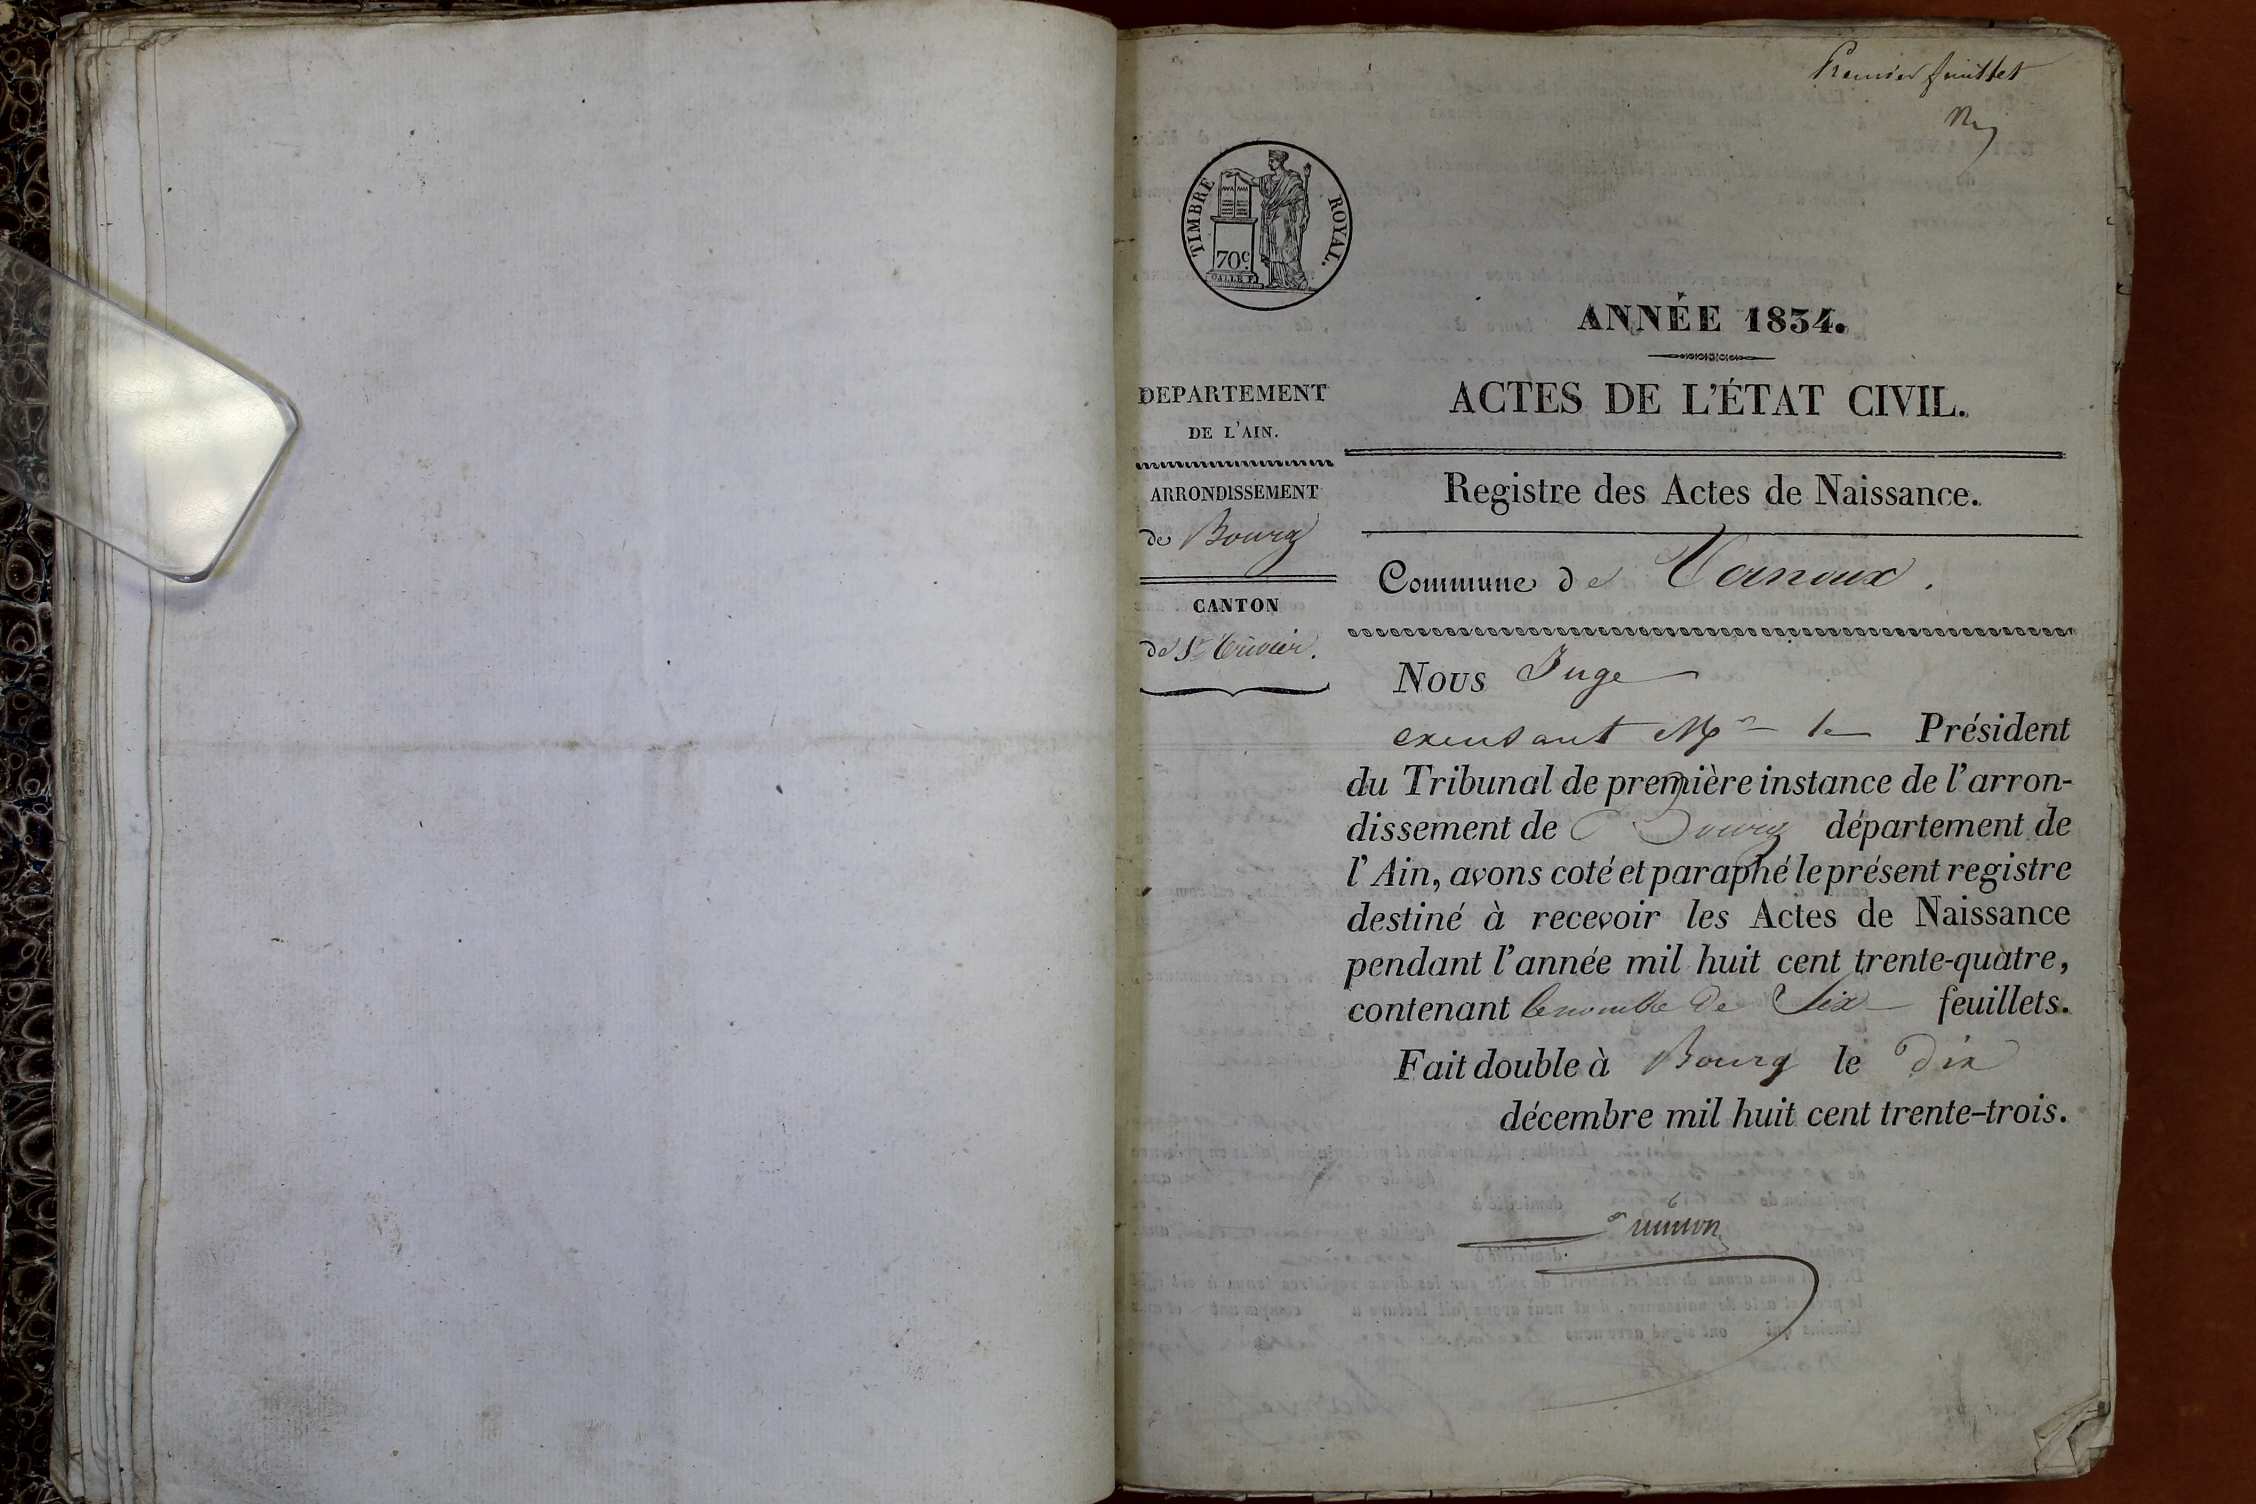 Premier feuillet
TIMBRE ROYAL.
70c
ANNÉE 1834.
DEPARTEMENT
DE L'AIN.
ACTES DE L'ÉTAT CIVIL.
ARRONDISSEMENT
de Bourg
Registre des Actes de Naissance.
CANTON
de St Trivier.
Commune de Vernoux.
Nous Juge
excusant Mr le Président
du Tribunal de première instance de l'arron-
dissement de Bourg département de
l'Ain, avons coté et paraphé le présent registre
destiné à recevoir les Actes de Naissance
pendant l'année mil huit cent trente-quatre,
contenant le nombre de Six feuillets.
Fait double à Bourg le dix
décembre mil huit cent trente-trois.